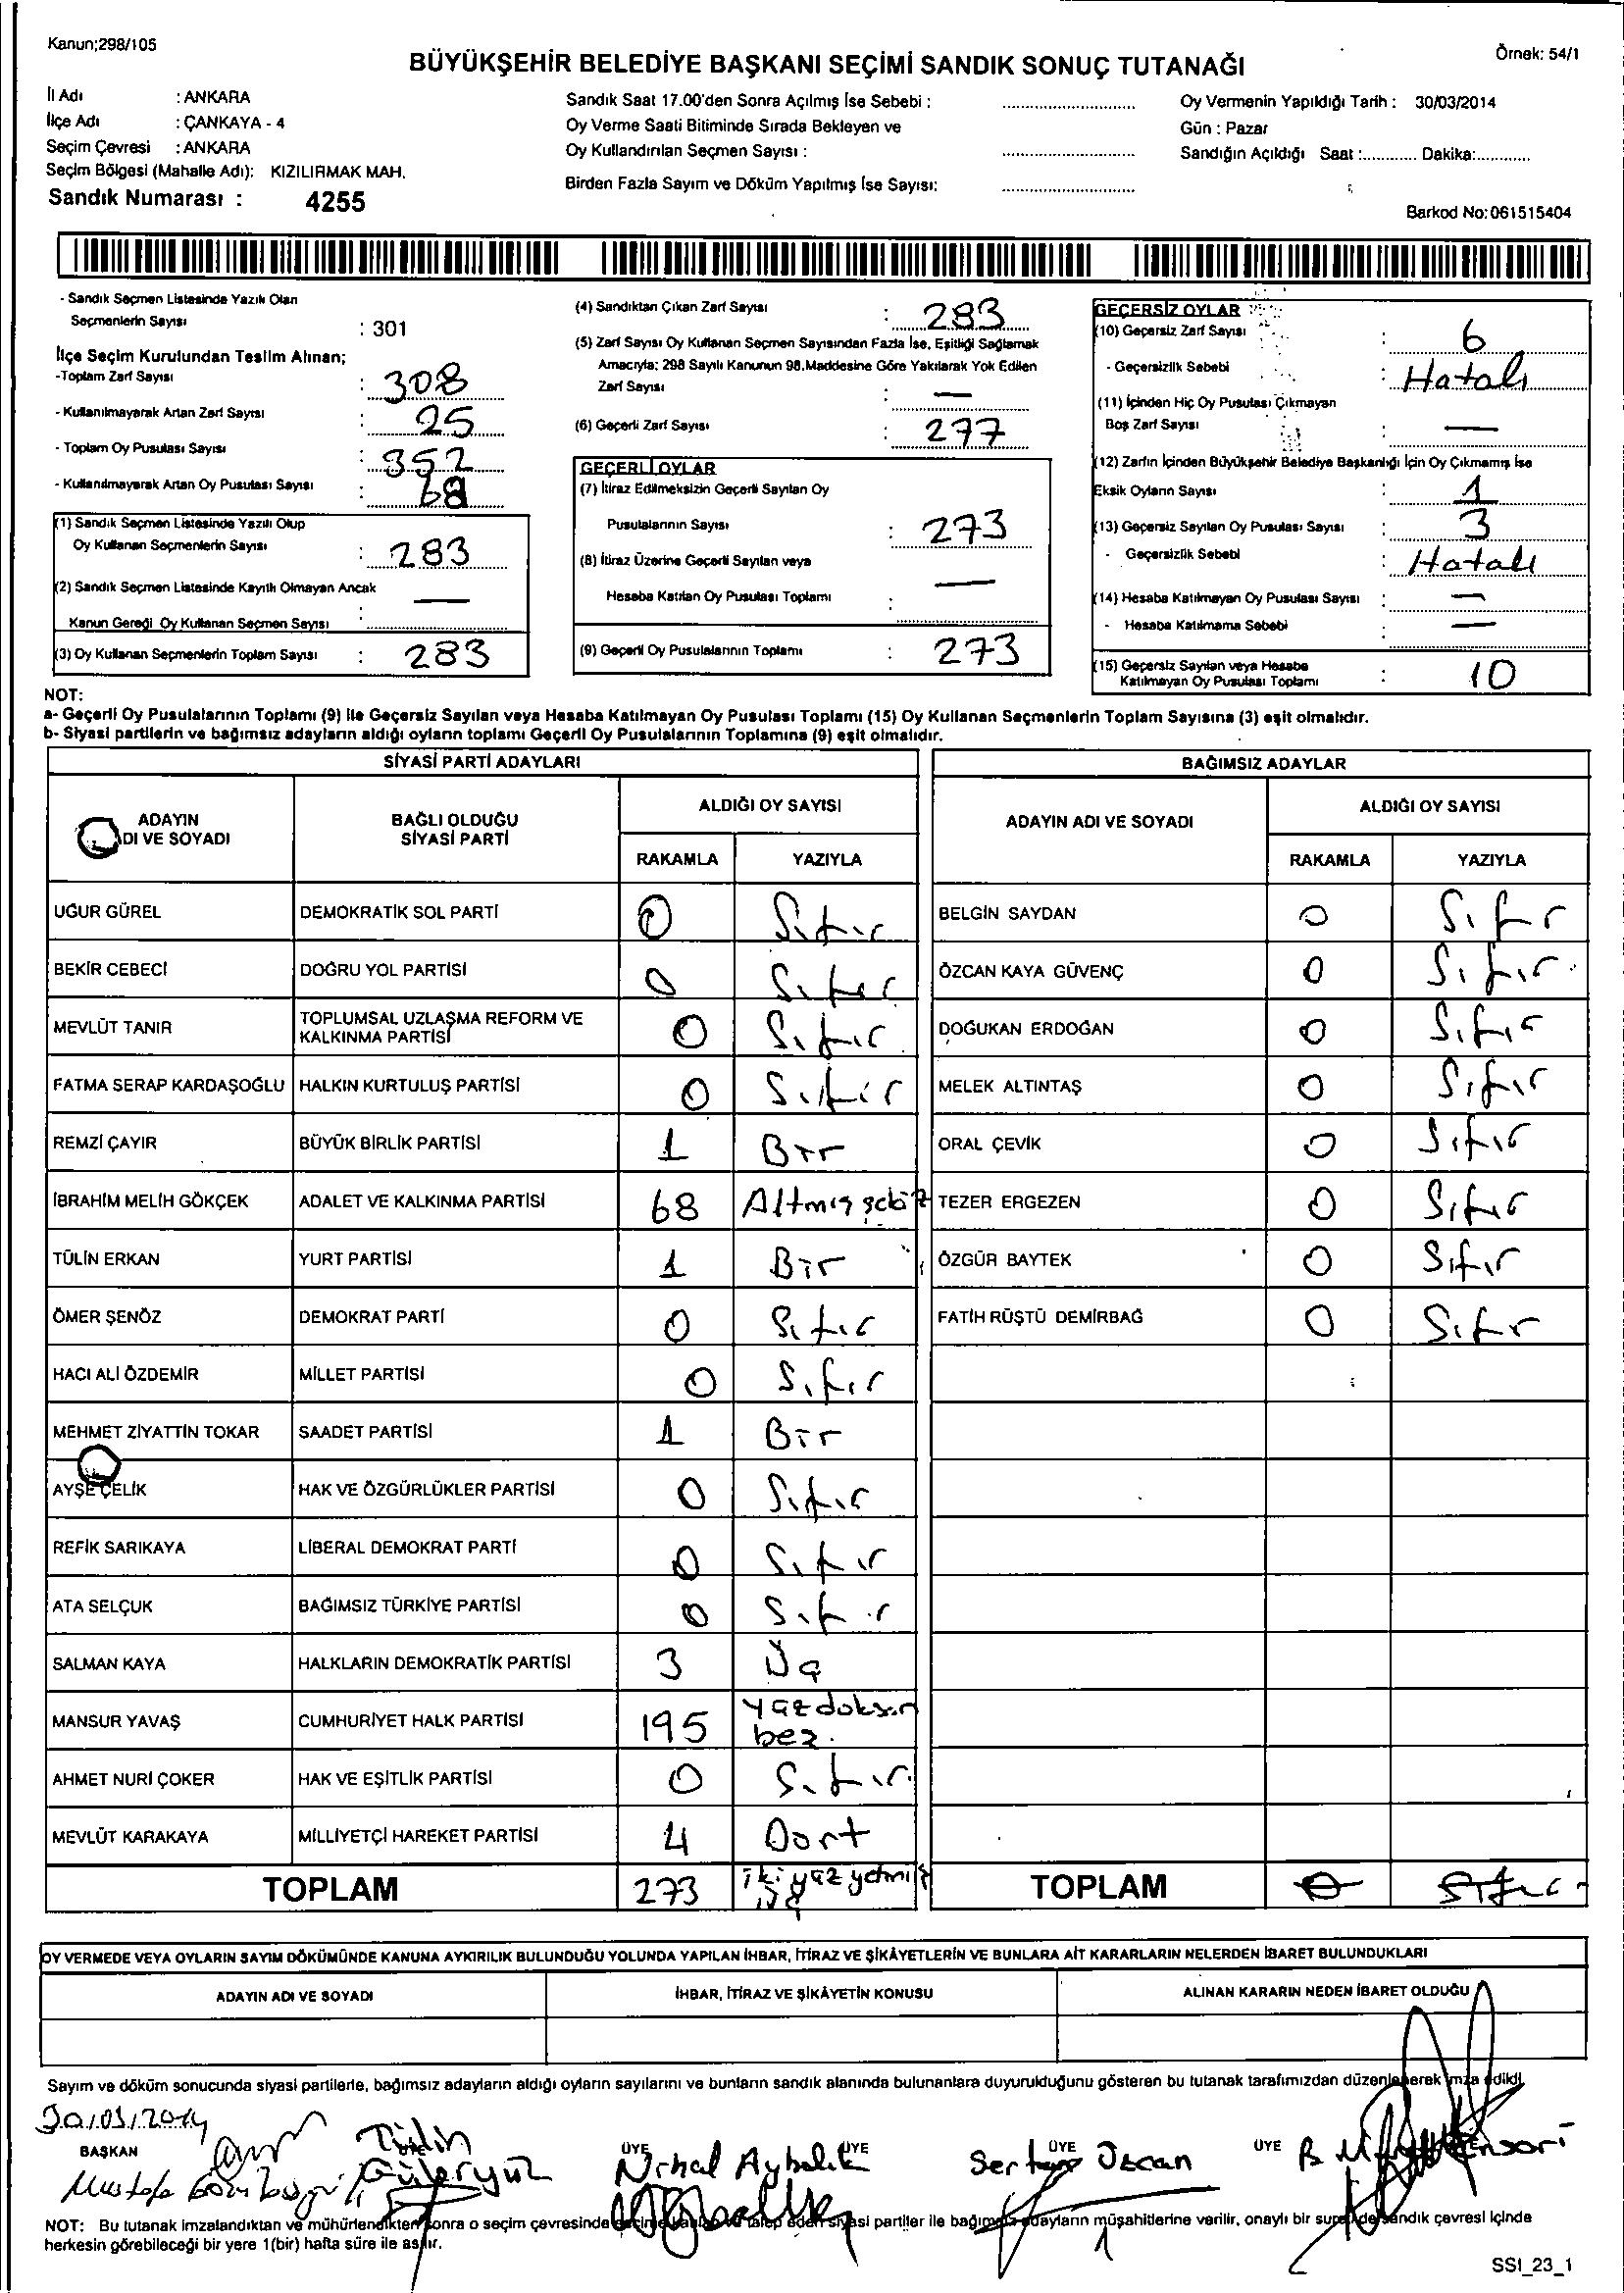 Kanun;298/105
BÜYÜKŞEHİR BELEDİYE BAŞKANI SEÇİMİ SANDIK SONUÇ TUTANAĞI
Örnek: 54/1
İl Adı : ANKARA
İlçe Adı : ÇANKAYA - 4
Seçim Çevresi : ANKARA
Seçim Bölgesi (Mahalle Adı): KIZILIRMAK MAH.
Sandık Numarası : 4255
Sandık Saat 17.00'den Sonra Açılmış İse Sebebi :
Oy Verme Saati Bitiminde Sırada Bekleyen ve
Oy Kullandırılan Seçmen Sayısı :
Birden Fazla Sayım ve Döküm Yapılmış İse Sayısı:
Oy Vermenin Yapıldığı Tarih : 30/03/2014
Gün : Pazar
Sandığın Açıldığı Saat :............ Dakika:............
Barkod No:061515404
- Sandık Seçmen Listesinde Yazılı Olan
Seçmenlerin Sayısı : 301
İlçe Seçim Kurulundan Teslim Alınan;
-Toplam Zarf Sayısı : 308
- Kullanılmayarak Artan Zarf Sayısı : 25
- Toplam Oy Pusulası Sayısı : 352
- Kullanılmayarak Artan Oy Pusulası Sayısı :
(1) Sandık Seçmen Listesinde Yazılı Olup
Oy Kullanan Seçmenlerin Sayısı : 283
(2) Sandık Seçmen Listesinde Kayıtlı Olmayan Ancak
Kanun Gereği Oy Kullanan Seçmen Sayısı : —
(3) Oy Kullanan Seçmenlerin Toplam Sayısı : 283
(4) Sandıktan Çıkan Zarf Sayısı : 283
(5) Zarf Sayısı Oy Kullanan Seçmen Sayısından Fazla İse, Eşitliği Sağlamak
Amacıyla; 298 Sayılı Kanunun 98.Maddesine Göre Yakılarak Yok Edilen
Zarf Sayısı : —
(6) Geçerli Zarf Sayısı : 277
GEÇERLİ OYLAR
(7) İtiraz Edilmeksizin Geçerli Sayılan Oy
Pusulalarının Sayısı : 273
(8) İtiraz Üzerine Geçerli Sayılan veya
Hesaba Katılan Oy Pusulası Toplamı : —
(9) Geçerli Oy Pusulalarının Toplamı : 273
GEÇERSİZ OYLAR
(10) Geçersiz Zarf Sayısı : 6
- Geçersizlik Sebebi : Hatalı
(11) İçinden Hiç Oy Pusulası Çıkmayan
Boş Zarf Sayısı : —
(12) Zarfın İçinden Büyükşehir Belediye Başkanlığı İçin Oy Çıkmamış İse
Eksik Oyların Sayısı : 1
(13) Geçersiz Sayılan Oy Pusulası Sayısı : 3
- Geçersizlik Sebebi : Hatalı
(14) Hesaba Katılmayan Oy Pusulası Sayısı : —
- Hesaba Katılmama Sebebi : —
(15) Geçersiz Sayılan veya Hesaba
Katılmayan Oy Pusulası Toplamı : 10
NOT:
a- Geçerli Oy Pusulalarının Toplamı (9) ile Geçersiz Sayılan veya Hesaba Katılmayan Oy Pusulası Toplamı (15) Oy Kullanan Seçmenlerin Toplam Sayısına (3) eşit olmalıdır.
b- Siyasi partilerin ve bağımsız adayların aldığı oyların toplamı Geçerli Oy Pusulalarının Toplamına (9) eşit olmalıdır.
SİYASİ PARTİ ADAYLARI
ADAYIN ADI VE SOYADI BAĞLI OLDUĞU SİYASİ PARTİ ALDIĞI OY SAYISI
RAKAMLA YAZIYLA
UĞUR GÜREL DEMOKRATİK SOL PARTİ 0 Sıfır
BEKİR CEBECİ DOĞRU YOL PARTİSİ 0 Sıfır
MEVLÜT TANIR TOPLUMSAL UZLAŞMA REFORM VE KALKINMA PARTİSİ 0 Sıfır
FATMA SERAP KARDAŞOĞLU HALKIN KURTULUŞ PARTİSİ 0 Sıfır
REMZİ ÇAYIR BÜYÜK BİRLİK PARTİSİ 1 Bir
İBRAHİM MELİH GÖKÇEK ADALET VE KALKINMA PARTİSİ 68 Altmış sekiz
TÜLİN ERKAN YURT PARTİSİ 1 Bir
ÖMER ŞENÖZ DEMOKRAT PARTİ 0 Sıfır
HACI ALİ ÖZDEMİR MİLLET PARTİSİ 0 Sıfır
MEHMET ZİYATTİN TOKAR SAADET PARTİSİ 1 Bir
AYŞE ÇELİK HAK VE ÖZGÜRLÜKLER PARTİSİ 0 Sıfır
REFİK SARIKAYA LİBERAL DEMOKRAT PARTİ 0 Sıfır
ATA SELÇUK BAĞIMSIZ TÜRKİYE PARTİSİ 0 Sıfır
SALMAN KAYA HALKLARIN DEMOKRATİK PARTİSİ 3 Üç
MANSUR YAVAŞ CUMHURİYET HALK PARTİSİ 195 yüzdoksan beş.
AHMET NURİ ÇOKER HAK VE EŞİTLİK PARTİSİ 0 Sıfır
MEVLÜT KARAKAYA MİLLİYETÇİ HAREKET PARTİSİ 4 Dört
TOPLAM 273 ikiyüz yetmiş üç
BAĞIMSIZ ADAYLAR
ADAYIN ADI VE SOYADI ALDIĞI OY SAYISI
RAKAMLA YAZIYLA
BELGİN SAYDAN 0 Sıfır
ÖZCAN KAYA GÜVENÇ 0 Sıfır
DOĞUKAN ERDOĞAN 0 Sıfır
MELEK ALTINTAŞ 0 Sıfır
ORAL ÇEVİK 0 Sıfır
TEZER ERGEZEN 0 Sıfır
ÖZGÜR BAYTEK 0 Sıfır
FATİH RÜŞTÜ DEMİRBAĞ 0 Sıfır
TOPLAM 0 Sıfır
OY VERMEDE VEYA OYLARIN SAYIM DÖKÜMÜNDE KANUNA AYKIRILIK BULUNDUĞU YOLUNDA YAPILAN İHBAR, İTİRAZ VE ŞİKÂYETLERİN VE BUNLARA AİT KARARLARIN NELERDEN İBARET BULUNDUKLARI
ADAYIN ADI VE SOYADI İHBAR, İTİRAZ VE ŞİKÂYETİN KONUSU ALINAN KARARIN NEDEN İBARET OLDUĞU
Sayım ve döküm sonucunda siyasi partilerle, bağımsız adayların aldığı oyların sayılarını ve bunların sandık alanında bulunanlara duyurulduğunu gösteren bu tutanak tarafımızdan düzenlenerek imza edildi.
30/03/2014
BAŞKAN ÜYE ÜYE ÜYE ÜYE
Mustafa
Tülin Güleryüz
Nihal Aybalık
Serhan Özcan
NOT: Bu tutanak imzalandıktan ve mühürlendikten sonra o seçim çevresinde seçime katılan ve talep eden siyasi partiler ile bağımsız adayların müşahitlerine verilir, onaylı bir sureti de sandık çevresi içinde
herkesin görebileceği bir yere 1(bir) hafta süre ile asılır.
SSI_23_1